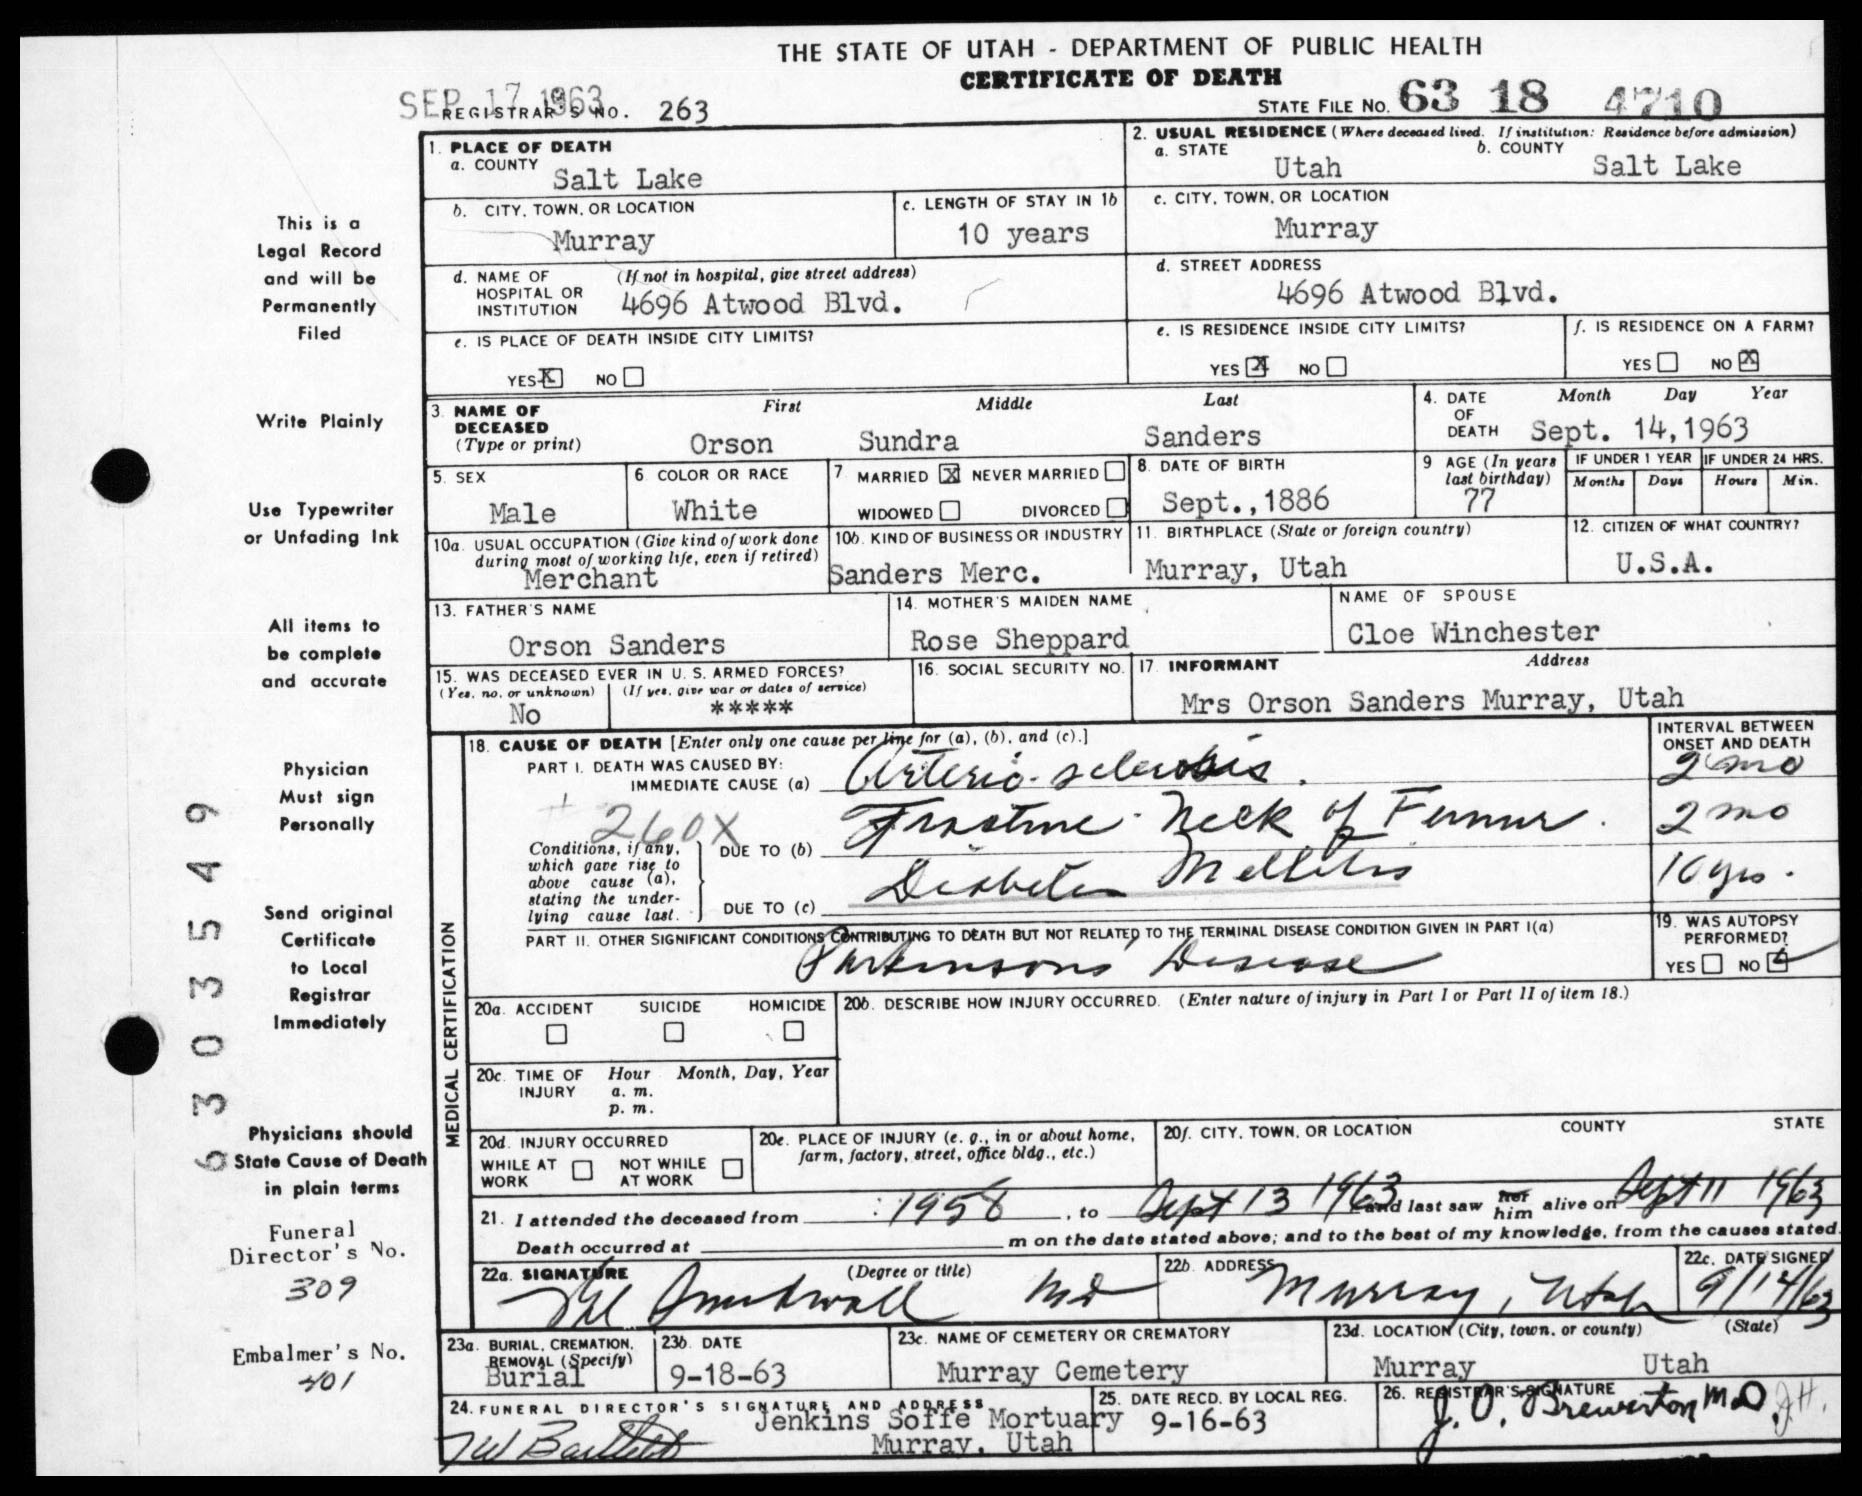 THE STATE OF UTAH - DEPARTMENT OF PUBLIC HEALTH
CERTIFICATE OF DEATH
SEP 17 1963
REGISTRAR'S NO. 263
STATE FILE NO. 63 18 4710
1. PLACE OF DEATH
a. COUNTY
Salt Lake
2. USUAL RESIDENCE (Where deceased lived. If institution: Residence before admission)
a. STATE Utah
b. COUNTY Salt Lake
b. CITY, TOWN, OR LOCATION
Murray
c. LENGTH OF STAY IN 1b
10 years
c. CITY, TOWN, OR LOCATION
Murray
d. NAME OF HOSPITAL OR INSTITUTION (If not in hospital, give street address)
4696 Atwood Blvd.
d. STREET ADDRESS
4696 Atwood Blvd.
e. IS PLACE OF DEATH INSIDE CITY LIMITS?
YES X NO
e. IS RESIDENCE INSIDE CITY LIMITS?
YES X NO
f. IS RESIDENCE ON A FARM?
YES NO X
3. NAME OF DECEASED (Type or print)
First Middle Last
Orson Sundra Sanders
4. DATE OF DEATH Month Day Year
Sept. 14,1963
5. SEX
Male
6 COLOR OR RACE
White
7 MARRIED X NEVER MARRIED
WIDOWED DIVORCED
8. DATE OF BIRTH
Sept.,1886
9 AGE (In years last birthday)
77
IF UNDER 1 YEAR
Months Days
IF UNDER 24 HRS.
Hours Min.
10a. USUAL OCCUPATION (Give kind of work done during most of working life, even if retired)
Merchant
10b. KIND OF BUSINESS OR INDUSTRY
Sanders Merc.
11. BIRTHPLACE (State or foreign country)
Murray, Utah
12. CITIZEN OF WHAT COUNTRY?
U.S.A.
13. FATHER'S NAME
Orson Sanders
14. MOTHER'S MAIDEN NAME
Rose Sheppard
NAME OF SPOUSE
Cloe Winchester
15. WAS DECEASED EVER IN U. S. ARMED FORCES?
(Yes, no, or unknown) (If yes, give war or dates of service)
No *****
16. SOCIAL SECURITY NO.
17. INFORMANT Address
Mrs Orson Sanders Murray, Utah
18. CAUSE OF DEATH [Enter only one cause per line for (a), (b), and (c).]
INTERVAL BETWEEN ONSET AND DEATH
PART I. DEATH WAS CAUSED BY:
IMMEDIATE CAUSE (a) Arterio-sclerosis. 2 mo
260X
Conditions, if any, which gave rise to above cause (a), stating the underlying cause last.
DUE TO (b) Fracture - Neck of Femur. 2 mo
DUE TO (c) Diabetes Mellitis 10 yrs.
PART II. OTHER SIGNIFICANT CONDITIONS CONTRIBUTING TO DEATH BUT NOT RELATED TO THE TERMINAL DISEASE CONDITION GIVEN IN PART I(a)
Parkinsons Disease
19. WAS AUTOPSY PERFORMED?
YES NO
20a. ACCIDENT SUICIDE HOMICIDE
20b. DESCRIBE HOW INJURY OCCURRED. (Enter nature of injury in Part I or Part II of item 18.)
20c. TIME OF INJURY Hour Month, Day, Year
a. m.
p. m.
20d. INJURY OCCURRED
WHILE AT WORK NOT WHILE AT WORK
20e. PLACE OF INJURY (e. g., in or about home, farm, factory, street, office bldg., etc.)
20f. CITY, TOWN, OR LOCATION COUNTY STATE
21. I attended the deceased from 1958, to Sept 13 1963 and last saw her him alive on Sept 11 1963
Death occurred at m on the date stated above; and to the best of my knowledge, from the causes stated.
22a. SIGNATURE (Degree or title)
MD
22b. ADDRESS
Murray, Utah
22c. DATE SIGNED
9/14/63
23a. BURIAL, CREMATION, REMOVAL (Specify)
Burial
23b. DATE
9-18-63
23c. NAME OF CEMETERY OR CREMATORY
Murray Cemetery
23d. LOCATION (City, town, or county) (State)
Murray Utah
24. FUNERAL DIRECTOR'S SIGNATURE AND ADDRESS
Jenkins Soffe Mortuary
Murray, Utah
25. DATE RECD. BY LOCAL REG.
9-16-63
26. REGISTRAR'S SIGNATURE
J. O. Brewerton MD J.H.
MEDICAL CERTIFICATION
This is a
Legal Record
and will be
Permanently
Filed
Write Plainly
Use Typewriter
or Unfading Ink
All items to
be complete
and accurate
Physician
Must sign
Personally
Send original
Certificate
to Local
Registrar
Immediately
Physicians should
State Cause of Death
in plain terms
Funeral
Director's No.
309
Embalmer's No.
401
6303549